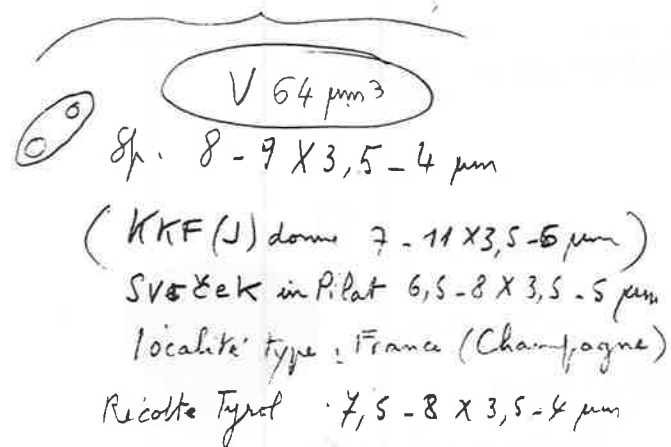 V 64 µm³
Sp. 8 - 9 X 3,5 - 4 µm
( KKF (J) donne 7 - 11 X 3,5 - 6 µm )
SVRČEK in Pilat 6,5 - 8 X 3,5 - 5 µm
localité type : France (Champagne)
Récolte Tyrol 7,5 - 8 X 3,5 - 4 µm